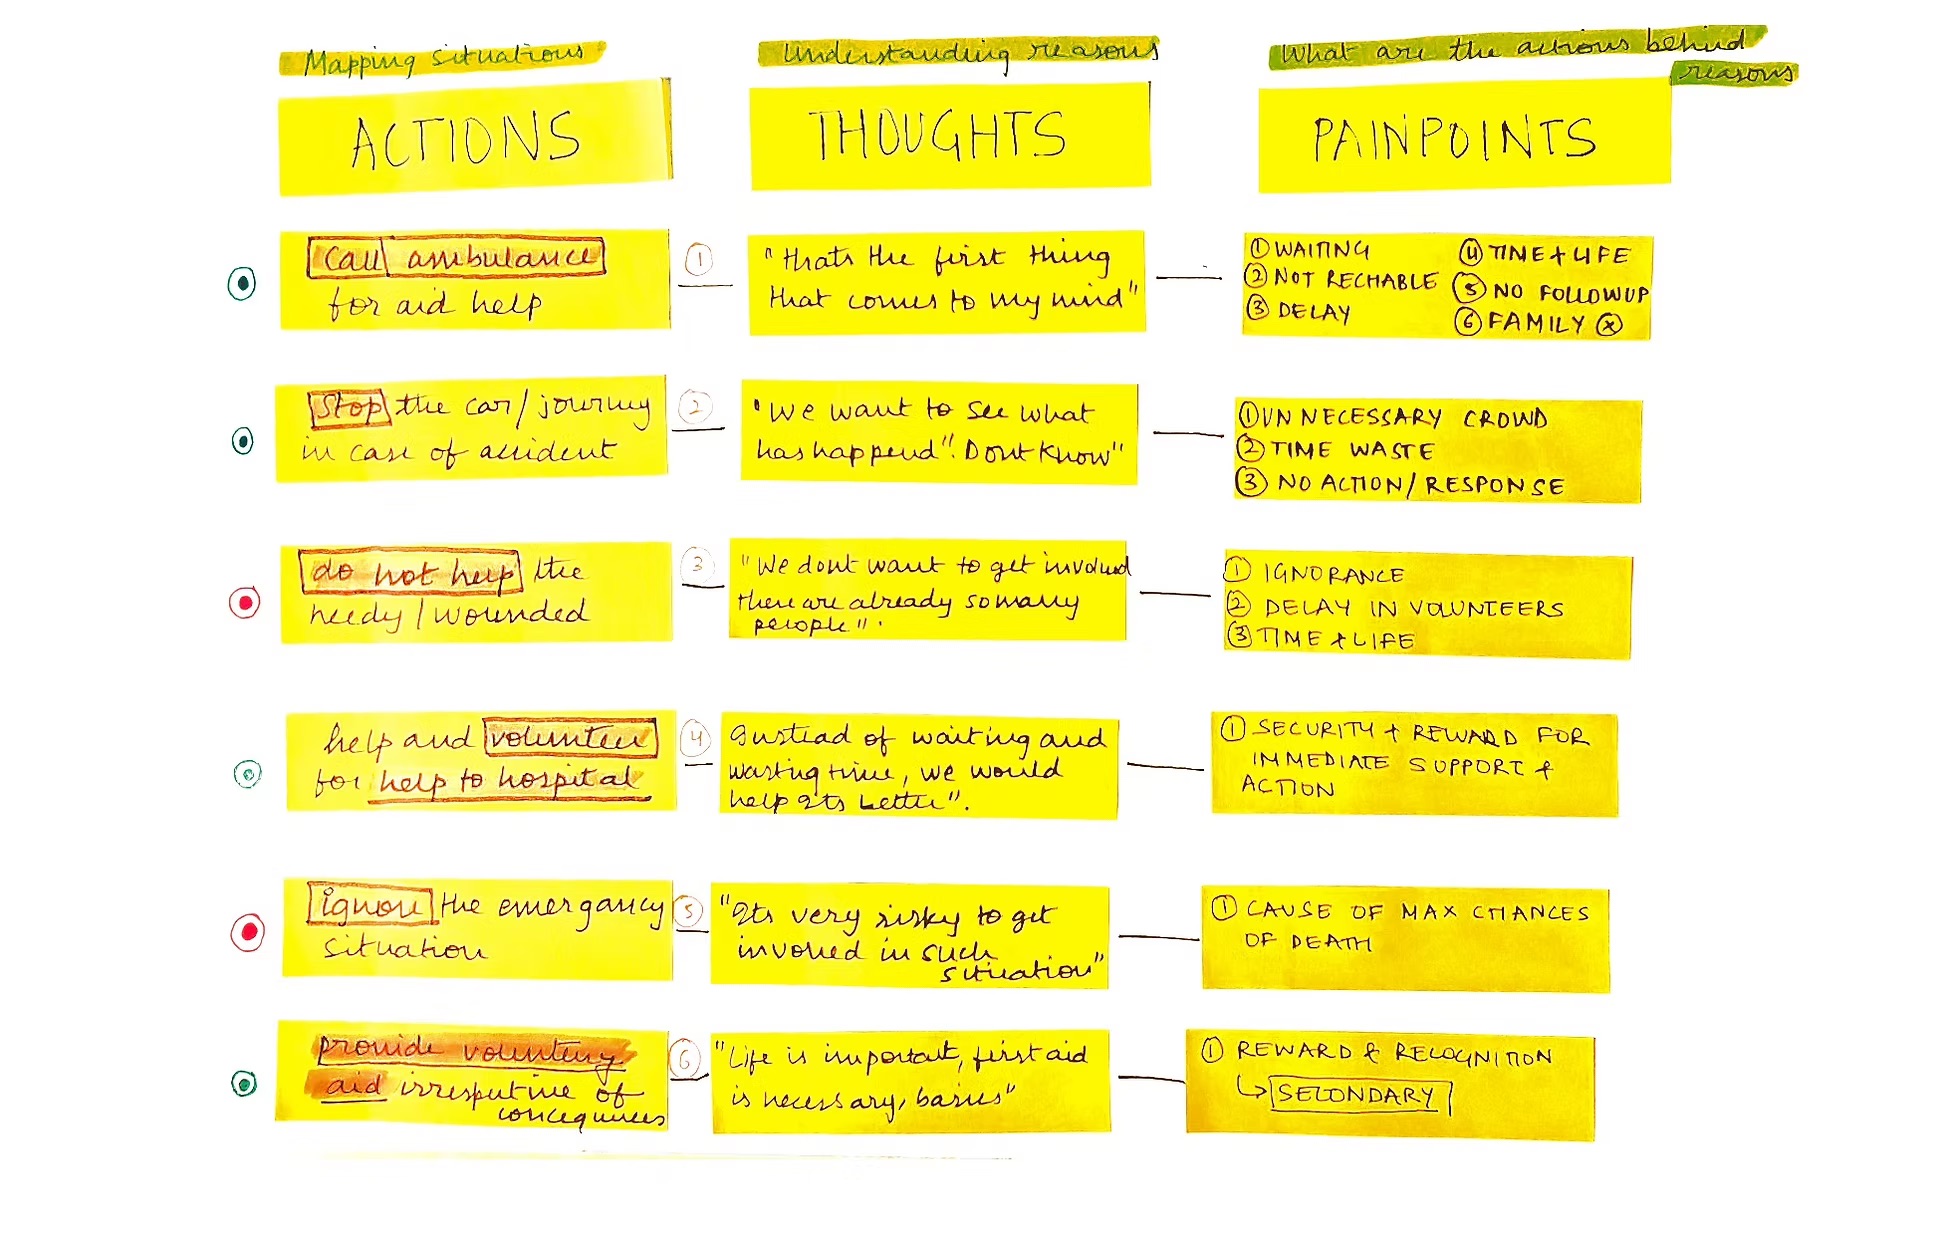 Mapping situations
ACTIONS
Understanding reasons
THOUGHTS
What are the actions behind
reasons
PAINPOINTS
Call ambulance
for aid help
①
"thats the first thing
that comes to my mind"
① WAITING
② NOT RECHABLE
③ DELAY
④ TIME + LIFE
⑤ NO FOLLOWUP
⑥ FAMILY ⓧ
Stop the car/journey
in case of accident
②
"We want to see what
has happend". Dont Know"
① UNNECESSARY CROWD
② TIME WASTE
③ NO ACTION/RESPONSE
do not help the
needy/wounded
③
"We dont want to get involved
there are already so many
people".
① IGNORANCE
② DELAY IN VOLUNTEERS
③ TIME + LIFE
help and volunteer
for help to hospital
④
Instead of waiting and
wasting time, we would
help Its better".
① SECURITY + REWARD FOR
IMMEDIATE SUPPORT +
ACTION
ignore the emergancy
situation
⑤
"Its very risky to get
involved in such
situation"
① CAUSE OF MAX CHANCES
OF DEATH
provide voluntery
aid irrespective of
concequences
⑥
"Life is important, first aid
is necessary, basics"
① REWARD & RECOGNITION
↳ SECONDARY